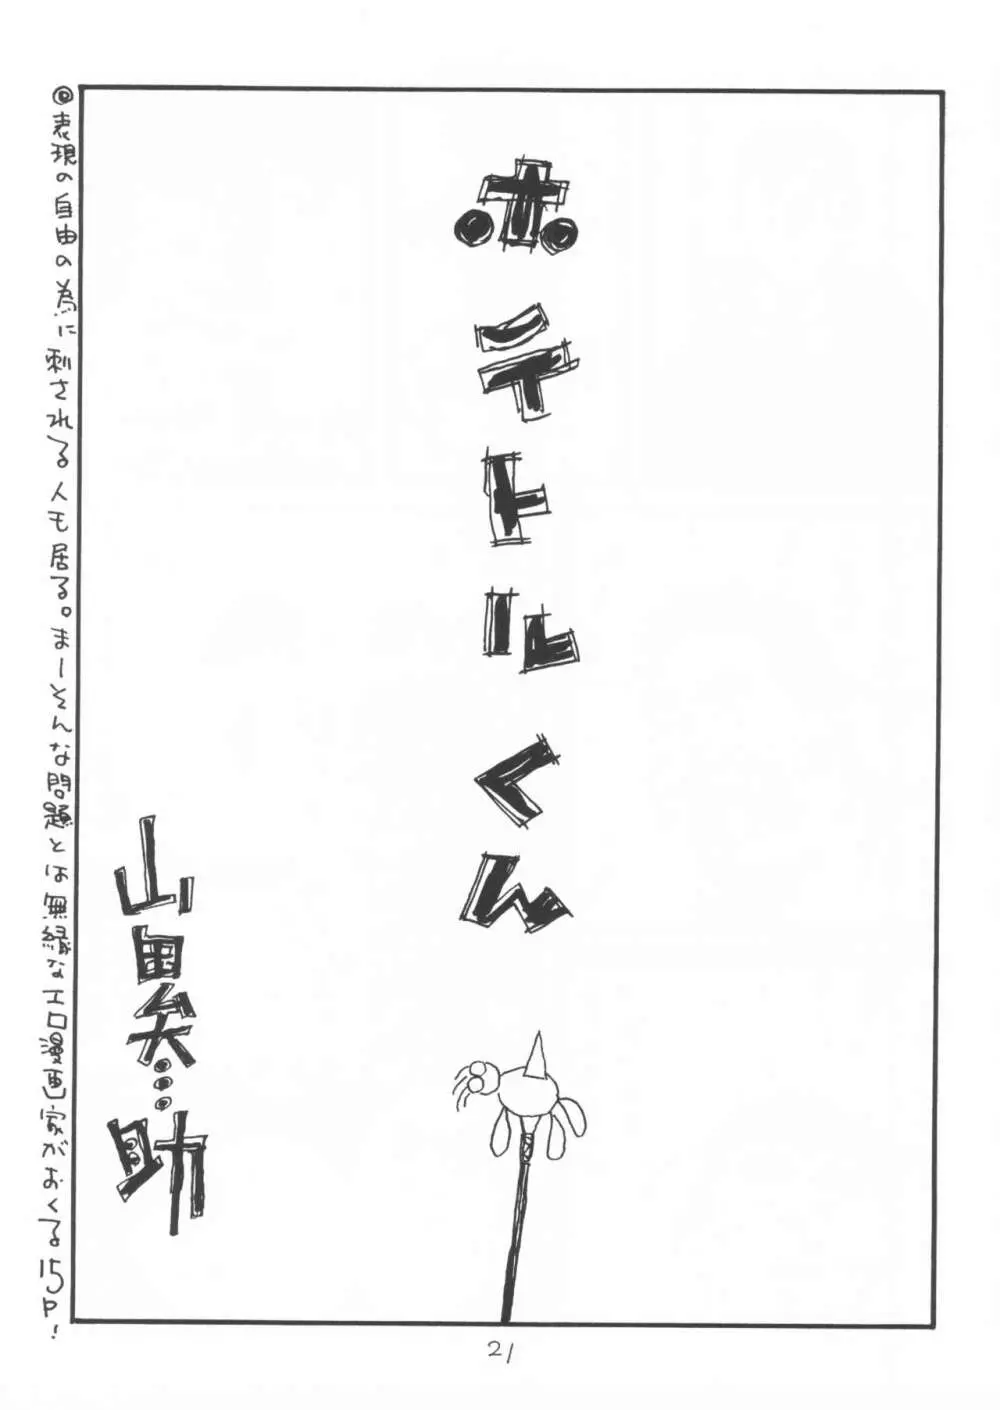 ホテトルくん
山田矣…助
◎表現の自由の為に刺される人も居る。まーそんな問題とは無縁なエロ漫画家がおくる15P!
21